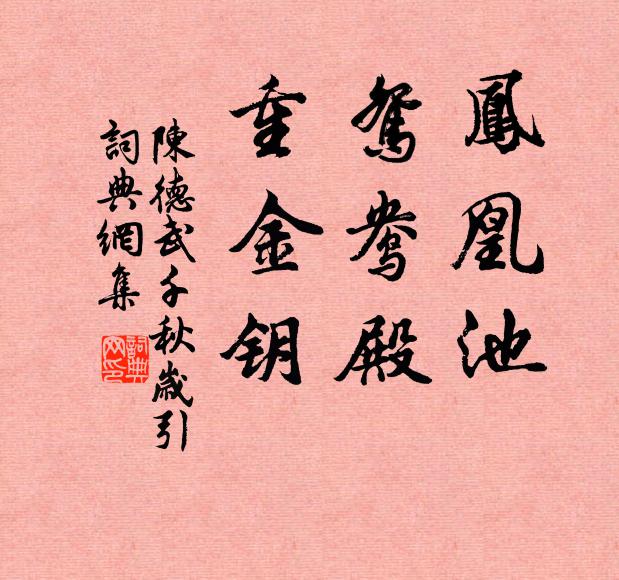 鳳凰池
鴛鴦殿
重金钥
陳德武千秋歲引
詞典網集
詞典
网印